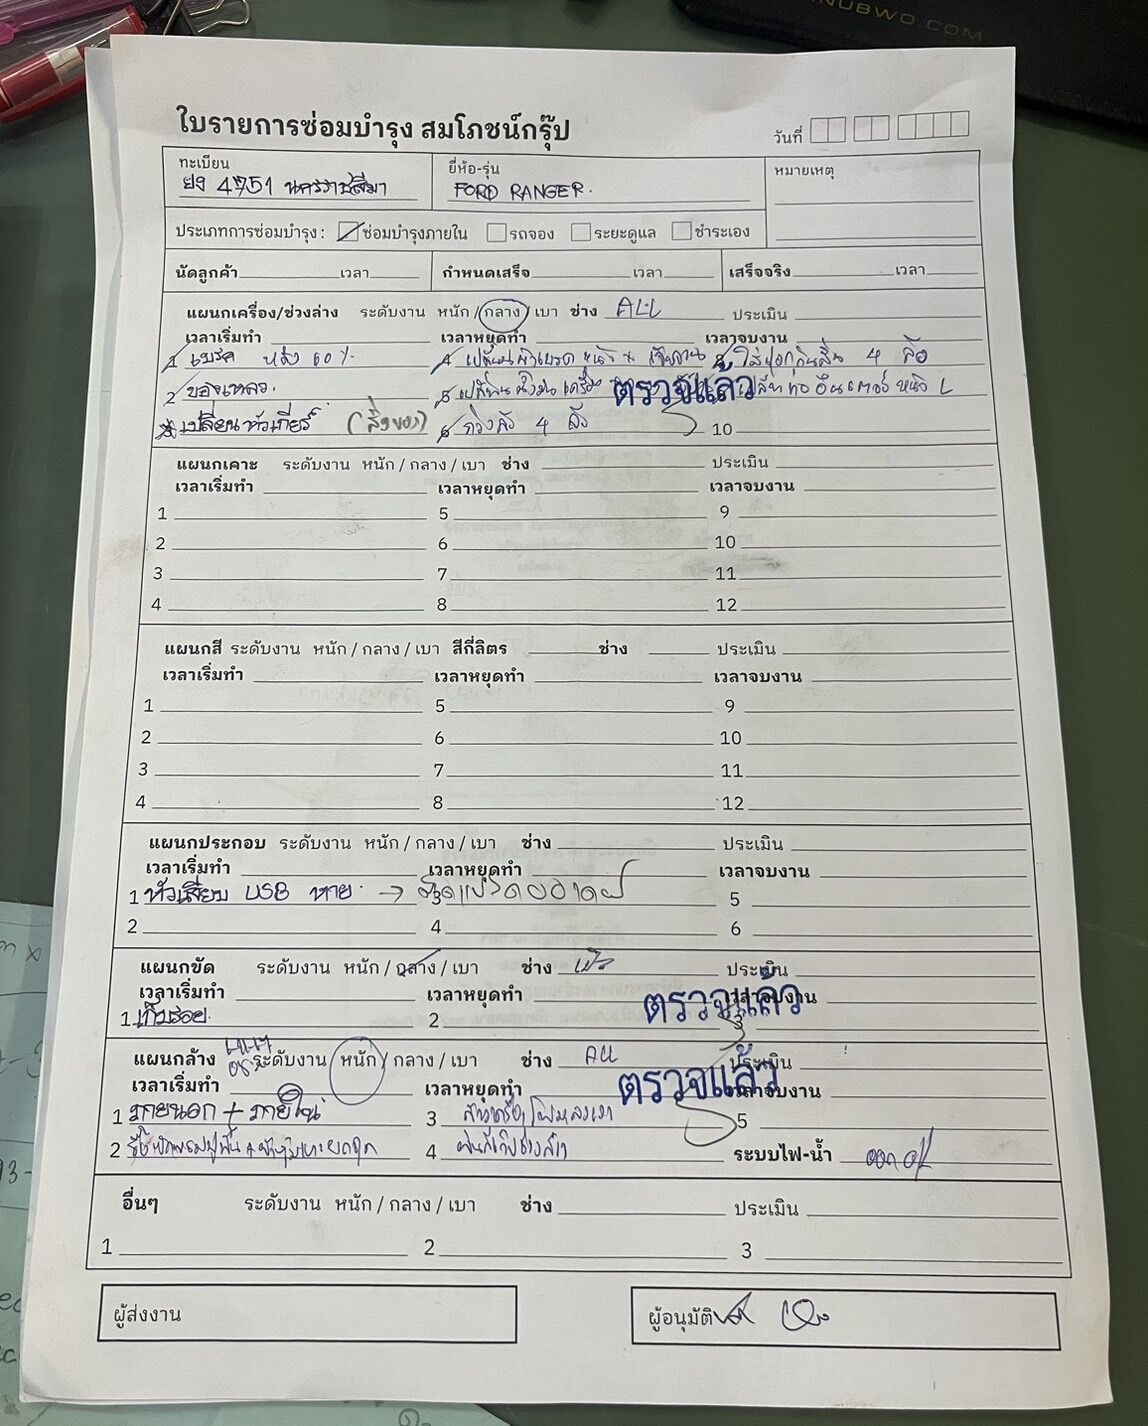 NUBWO.COM
ใบรายการซ่อมบำรุง สมโภชน์กรุ๊ป
วันที่
ทะเบียน
ยง 4751 นครราชสีมา
ยี่ห้อ-รุ่น
FORD RANGER.
หมายเหตุ
ประเภทการซ่อมบำรุง : ซ่อมบำรุงภายใน รถจอง ระยะดูแล ชำระเอง
นัดลูกค้า เวลา กำหนดเสร็จ เวลา เสร็จจริง เวลา
แผนกเครื่อง/ช่วงล่าง ระดับงาน หนัก / กลาง / เบา ช่าง ALL ประเมิน
เวลาเริ่มทำ เวลาหยุดทำ เวลาจบงาน
1 เบรค หลัง 60 % 4 เปลี่ยนผ้าเบรค 4 ล้อ
2 ของเหลว. 5 เปลี่ยน เครื่อง ตรวจแล้ว L
3 เปลี่ยนหัวเกียร์ (สั่งของ) 6 4 ล้อ 10
แผนกเคาะ ระดับงาน หนัก / กลาง / เบา ช่าง ประเมิน
เวลาเริ่มทำ เวลาหยุดทำ เวลาจบงาน
1 5 9
2 6 10
3 7 11
4 8 12
แผนกสี ระดับงาน หนัก / กลาง / เบา สีกี่ลิตร ช่าง ประเมิน
เวลาเริ่มทำ เวลาหยุดทำ เวลาจบงาน
1 5 9
2 6 10
3 7 11
4 8 12
แผนกประกอบ ระดับงาน หนัก / กลาง / เบา ช่าง ประเมิน
เวลาเริ่มทำ เวลาหยุดทำ เวลาจบงาน
1 หัวเสียบ USB หาย → 3 5
2 4 6
แผนกขัด ระดับงาน หนัก / กลาง / เบา ช่าง ประเมิน
เวลาเริ่มทำ เวลาหยุดทำ ตรวจแล้ว เวลาจบงาน
1 เก็บรอย. 2 3
แผนกล้าง ระดับงาน หนัก / กลาง / เบา ช่าง ALL ประเมิน
เวลาเริ่มทำ เวลาหยุดทำ ตรวจแล้ว เวลาจบงาน
1 ภายนอก + ภายใน 3 5
2 4 ระบบไฟ-น้ำ
อื่นๆ ระดับงาน หนัก / กลาง / เบา ช่าง ประเมิน
1 2 3
ผู้ส่งงาน ผู้อนุมัติ